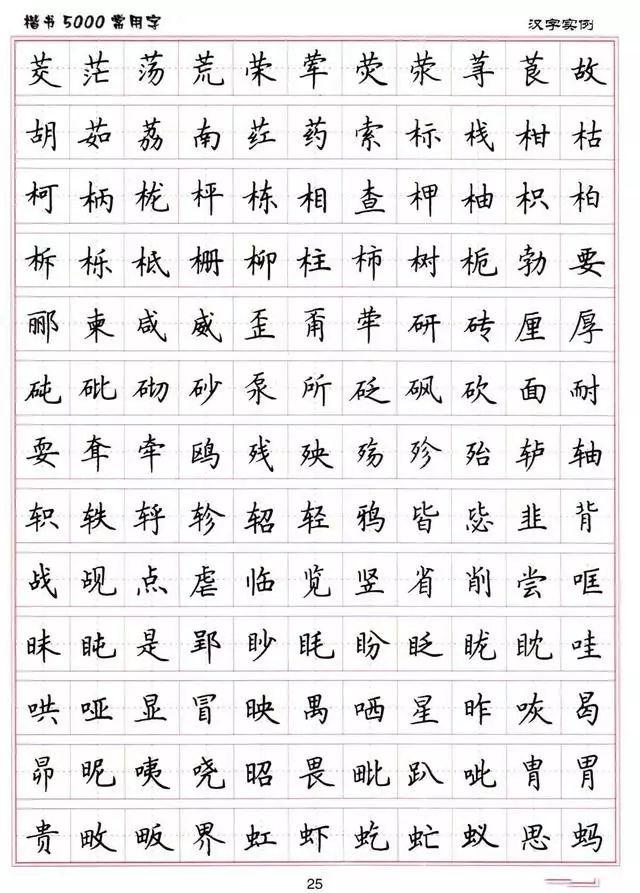 楷书5000常用字 汉字实例
茭茫荡荒荣荤荧荥荨茛故
胡茹荔南荭药索标栈柑枯
柯柄栊枰栋相查柙柚枳柏
柝栎柢栅柳柱柿树栀勃要
郦柬咸威歪甭荦研砖厘厚
砘砒砌砂泵所砭砜砍面耐
耍耷牵鸥残殃殇殄殆轳轴
轵轶轷轸轺轻鸦皆毖韭背
战觇点虐临览竖省削尝哐
昧盹是郢眇眊盼眨眬眈哇
哄哑显冒映禺哂星昨咴曷
昴昵咦哓昭畏毗趴呲胄胃
贵畋畈界虹虾虼虻蚁思蚂
25